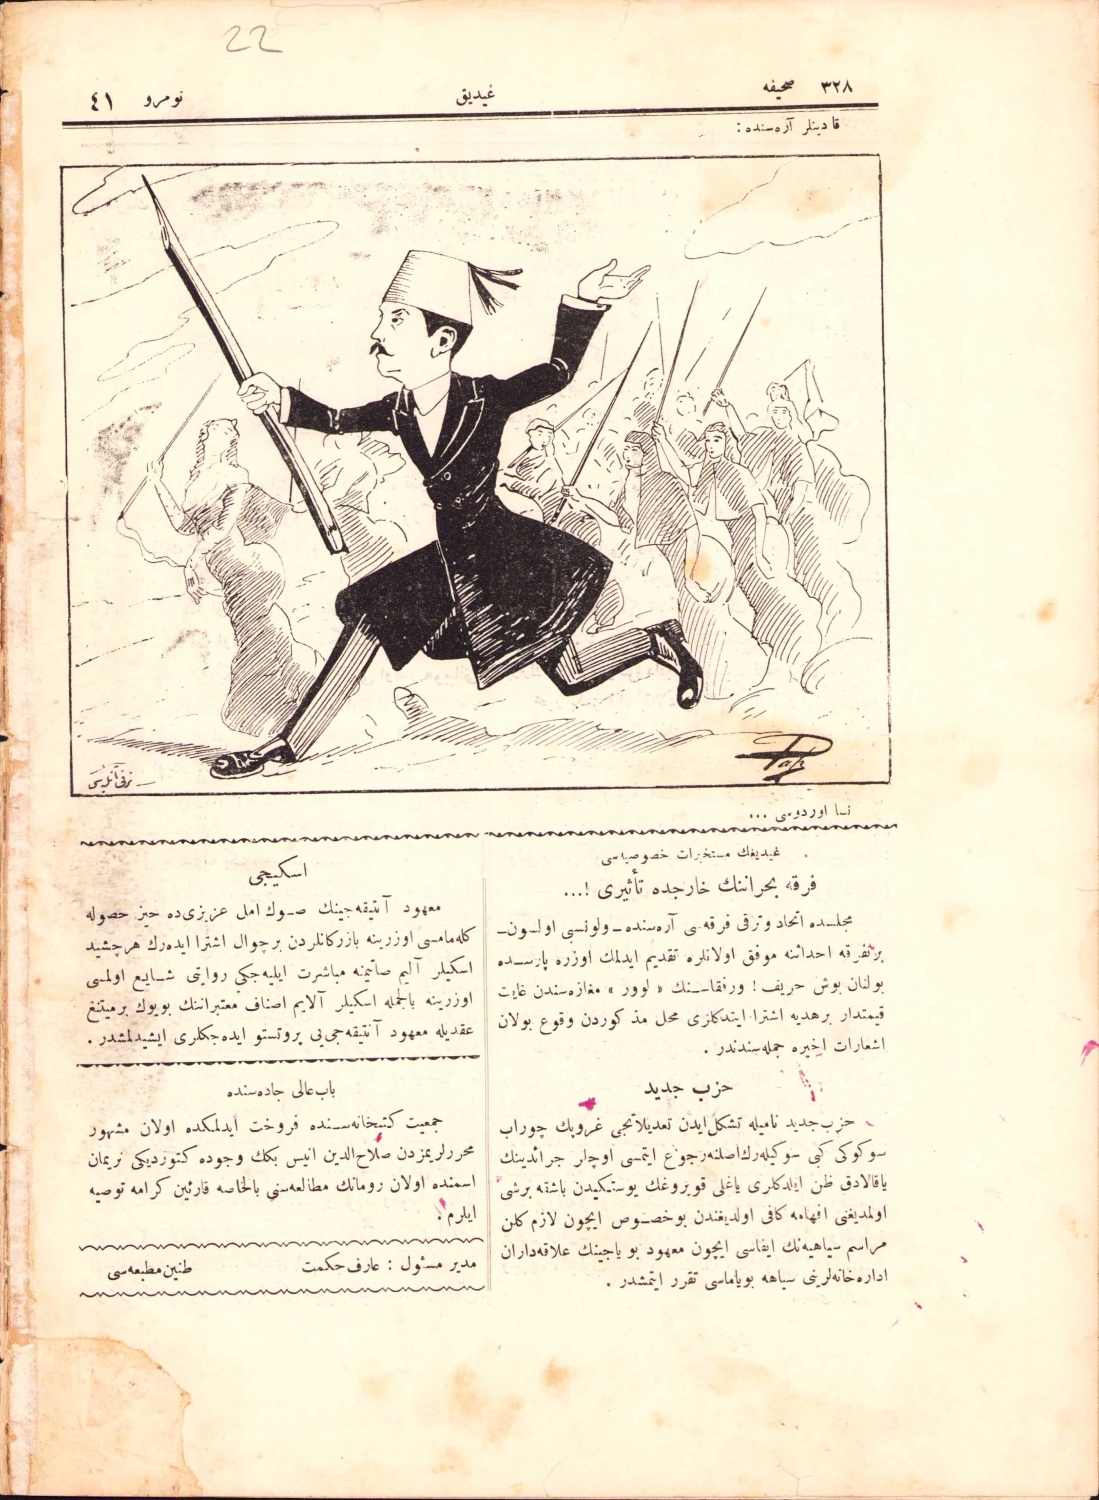 22
صحیفه ٣٢٨
غیدیق
نومرو ٤١
قادینلر آره‌سنده :
Pap
نسا اوردوسی ...
غیدیغك مستخبرات خصوصیه‌سی
فرقه بحراننك خارجده تأثیری !...
مجلسده اتحاد وترقی فرقه‌سی آره‌سنده ــ ولونسبی اولسون ــ
برتفرقه احداثنه موفق اولانلره تقدیم ایدلمك اوزره پارسده
بولنان بوش حریف ! ورفقاسنك « لوور » مغازه‌سندن غایت
قیمتدار برهدیه اشترا ایتدكلری محل مذكوردن وقوع بولان
اشعارات اخیره جمله‌سندندر .
حزب جدید
حزب جدید نامیله تشكل ایدن تعدیلاتجی غروپك چوراب
سوكوكی كبی سوكیله‌رك اصلنه رجوع ایتمسی اوچلر جرائدینك
یاقالادق ظن ایلدكلری یاغلی قویروغك پوستیكیدن باشقه برشی
اولمدیغنی افهامه كافی اولدیغندن بوخصوص ایچون لازم كلن
مراسم سیاهیه‌نك ایفاسی ایچون معهود بویاجینك علاقه‌داران
اداره‌خانه‌لرینی سیاهه بویاماسی تقرر ایتمشدر .
اسكیجی
معهود آنتیقه‌جینك صوك امل عزیزی‌ده حیز حصوله
كله‌مامسی اوزرینه بازركانلردن برچوال اشترا ایده‌رك هرچشید
اسكیلر آلیم صاتیمنه مباشرت ایلیه‌جكی روایتی شایع اولمسی
اوزرینه بالجمله اسكیلر آلایم اصناف معتبراننك بویوك برمیتنغ
عقدیله معهود آنتیقه‌جی‌یی پروتستو ایده‌جكلری ایشیدلمشدر .
باب عالی جاده‌سنده
جمعیت كتبخانه‌سنده فروخت ایدلمكده اولان مشهور
محررلریمزدن صلاح‌الدین انیس بكك وجوده كتوردیكی نریمان
اسمنده اولان رومانك مطالعه‌سنی بالخاصه قارئین كرامه توصیه
ایلرم .
مدیر مسئول : عارف حكمت
طنین مطبعه‌سی